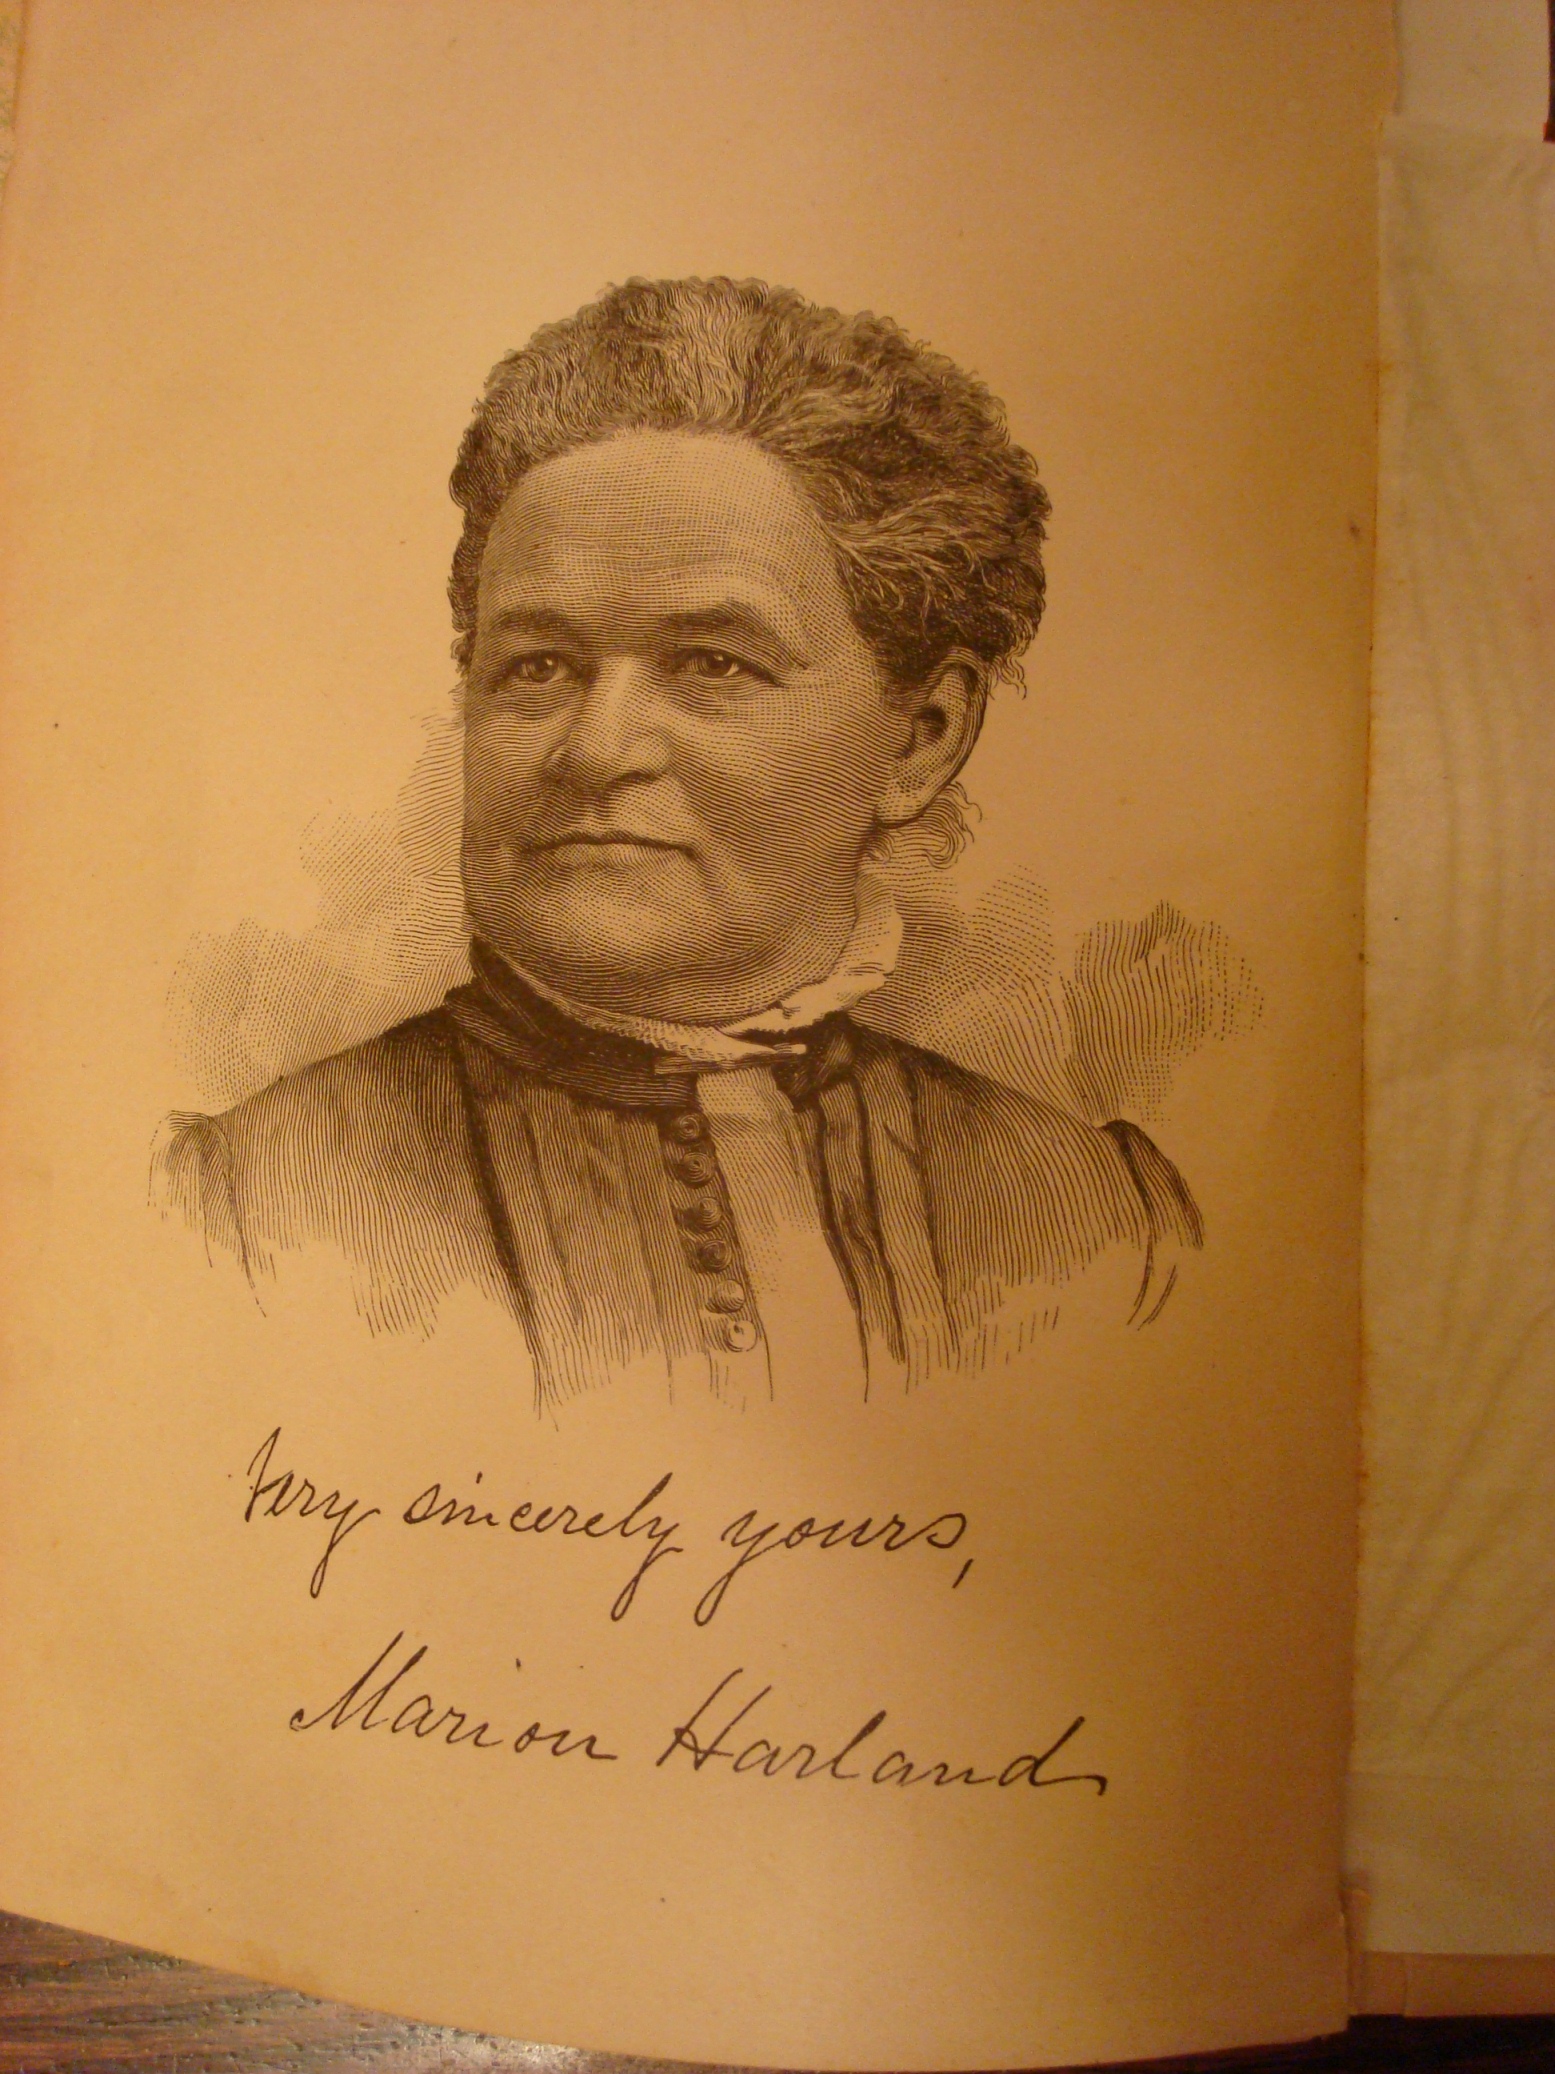 Very sincerely yours,
Marion Harland